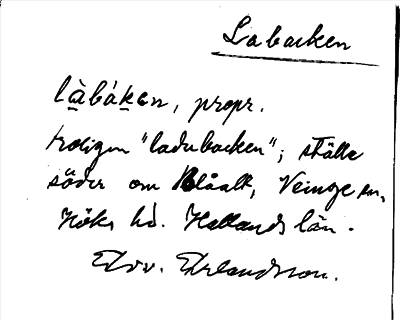 Labacken
làbáken, propr.
troligen "ladubacken"; ställe
söder om Blåalt, Veinge sn,
Höks hd. Hallands län.
Edv. Erlandsson.